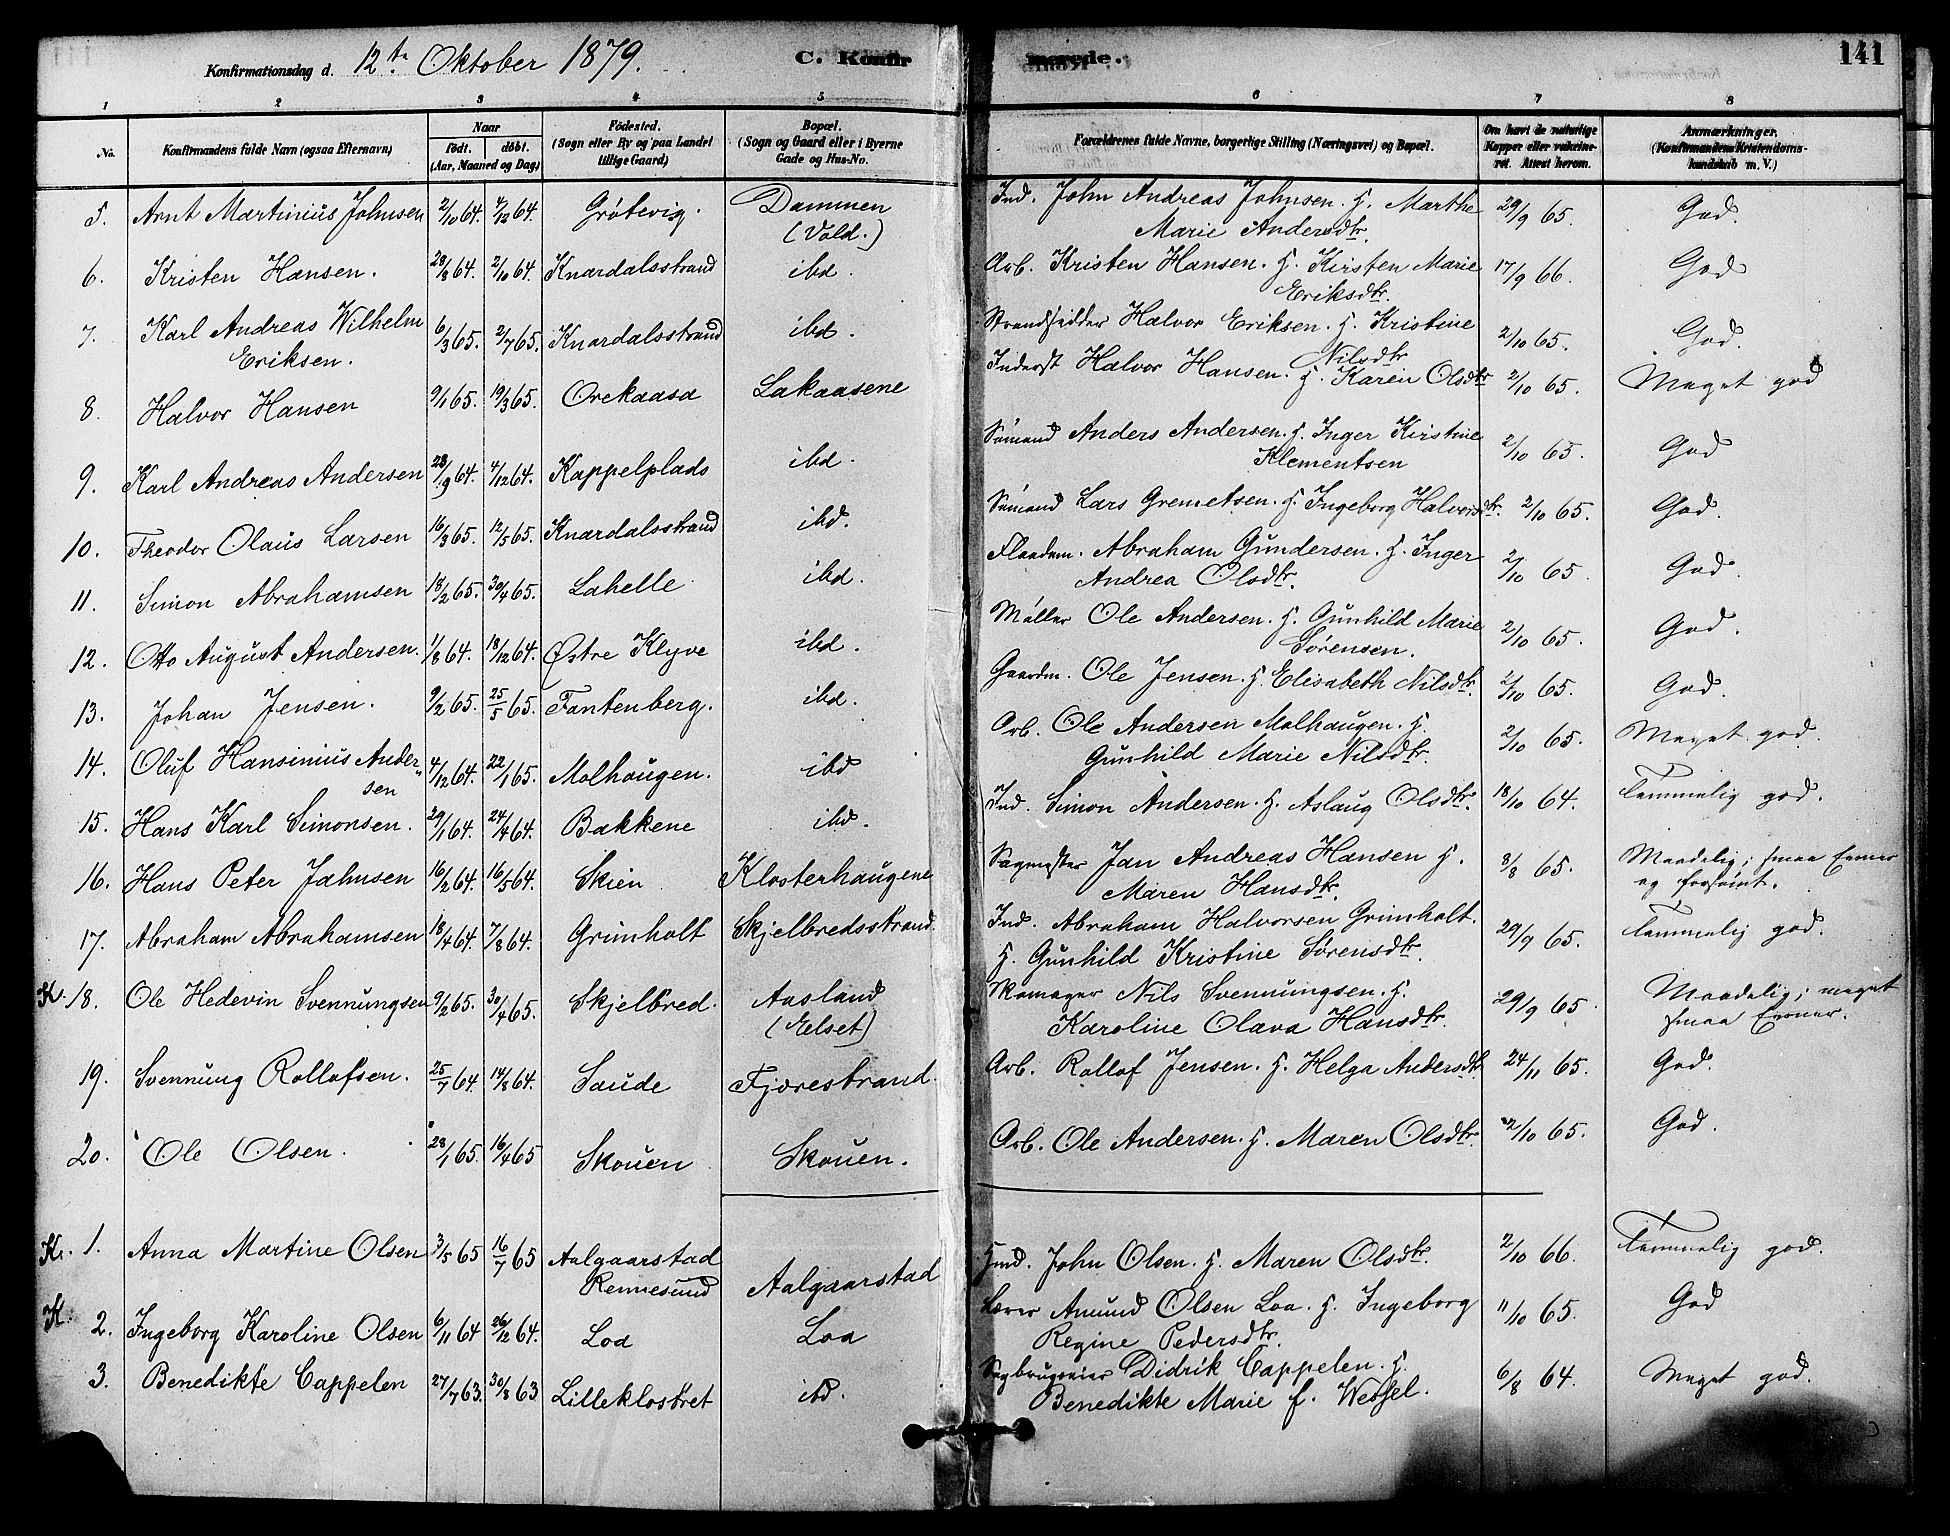 Konfirmationsdag d. 12te Oktober 1879.
C. Konfir
merede.
141
1 2 3 4 5 6 7 8
No.
Konfirmandens fulde Navn (ogsaa Efternavn)
Naar
født. døbt.
(Aar, Maaned og Dag)
Fødested.
(Sogn eller By og paa Landet
tillige Gaard)
Bopæl.
(Sogn og Gaard eller i Byerne
Gade og Hus-No.
Forældrenes fulde Navne, borgerlige Stilling (Næringsvei) og Bopæl.
Om havt de naturlige
Kopper eller vakcine-
ret. Attest herom.
Anmærkninger.
(Konfirmandens Kristendoms-
kundskab m. V.)
5. Arnt Martinius Johnsen 2/10 64. 4/12 64. Grøtevig. Dammen Ind. John Andreas Johnsen. H. Marthe 29/9 65. God.
(Vold.) Marie Andersdtr.
6. Kristen Hansen. 28/8 64. 2/10 64. Knardalsstrand ibd. Arb. Kristen Hansen. H. Kirsten Marie 17/9 66. God
Eriksdtr.
7. Karl Andreas Wilhelm 6/3 65. 2/7 65. Knardalsstrand ibd. Strandsidder Halvor Eriksen. H. Kristine 2/10 65. God.
Eriksen. Nilsdtr
8. Halvor Hansen 9/1 65. 19/3 65. Orekaasa Lakaasene Inderst Halvor Hansen. H. Karen Olsdtr 2/10 65. Meget god
9. Karl Andreas Andersen 28/9 64. 4/12 64. Kappelplads ibd. Sømand Anders Andersen. H. Inger Kirstine 2/10 65. God
Klementsen
10. Theodor Olaus Larsen 16/3 65. 12/5 65. Knardalsstrand ibd. Sømand Lars Gremetsen. H. Ingeborg Halvorsdtr. 2/10 65. God.
11. Simon Abrahamsen 18/2 65. 30/4 65. Lahelle ibd. Flaadem. Abraham Gundersen. H. Inger 2/10 65. God.
Andrea Olsdtr.
12. Otto August Andersen. 1/8 64. 18/12 64. Østre Klyve ibd. Møller Ole Andersen. H. Gunhild Marie 2/10 65. God.
Sørensen.
13. Johan Jensen. 9/2 65. 25/5 65. Fantenberg. ibd. Gaardm. Ole Jensen. H. Elisabeth Nilsdtr. 2/10 65. God.
14. Oluf Hansinius Ander- 4/12 64. 22/1 65. Molhaugen. ibd Arb. Ole Andersen Molhaugen. H. 2/10 65. Meget god.
sen Gunhild Marie Nilsdtr.
15. Hans Karl Simonsen. 29/1 64. 24/4 64. Bakkene ibd. Ind. Simon Andersen. H. Aslaug Olsdtr. 18/10 64. Temmelig god.
16. Hans Peter Jahnsen 16/2 64. 16/5 64. Skien Klosterhaugene Sagmester Jan Andreas Hansen H. 8/8 65. Maadelig; smaa Evner
Maren Hansdtr. og forsømt.
17. Abraham Abrahamsen 18/4 64. 7/8 64. Grimholt Skjelbredsstrand. Ind. Abraham Halvorsen Grimholt. 29/9 65. Temmelig god.
H. Gunhild Kristine Sørensdtr.
K. 18. Ole Hedevin Svennungsen 9/2 65. 30/4 65. Skjelbred. Aasland Skomager Nils Svennungsen. H. 29/9 65. Maadelig; meget
(Melset) Karoline Olava Hansdtr. smaa Evner.
19. Svennung Rollofsen. 25/7 64. 14/8 64. Saude Fjærestrand. Arb. Rollof Jensen. H. Helga Andersdtr 24/11 65. God.
20. Ole Olsen. 28/1 65. 16/4 65 Skouen Skouen. Arb. Ole Andersen. H. Maren Olsdtr. 2/10 65. God.
K. 1. Anna Martine Olsen 3/5 65 16/7 65 Aalgaarstad Aalgaarstad Hmd. John Olsen. H. Maren Olsdtr. 2/10 66. Temmelig god.
Rennesund
K. 2. Ingeborg Karoline Olsen 6/11 64 26/12 64. Loa Loa Lærer Amund Olsen Loa. H. Ingeborg 11/10 65. God
Regine Pedersdtr.
3. Benedikte Cappelen 27/7 63. 30/8 63 Lilleklostret ibd. Sagbrugseier Didrik Cappelen. H. 6/8 64. Meget god.
Benedikte Marie f. Wessel.